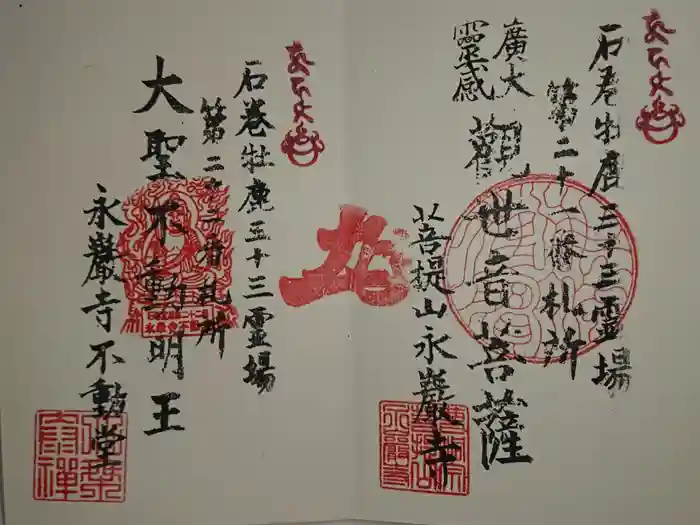 石巻牡鹿三十三霊場
第二十一番札所
廣大
霊感
觀世音菩薩
菩提山永巖寺
石巻牡鹿三十三霊場
第二十二番札所
大聖不動明王
永巖寺不動堂